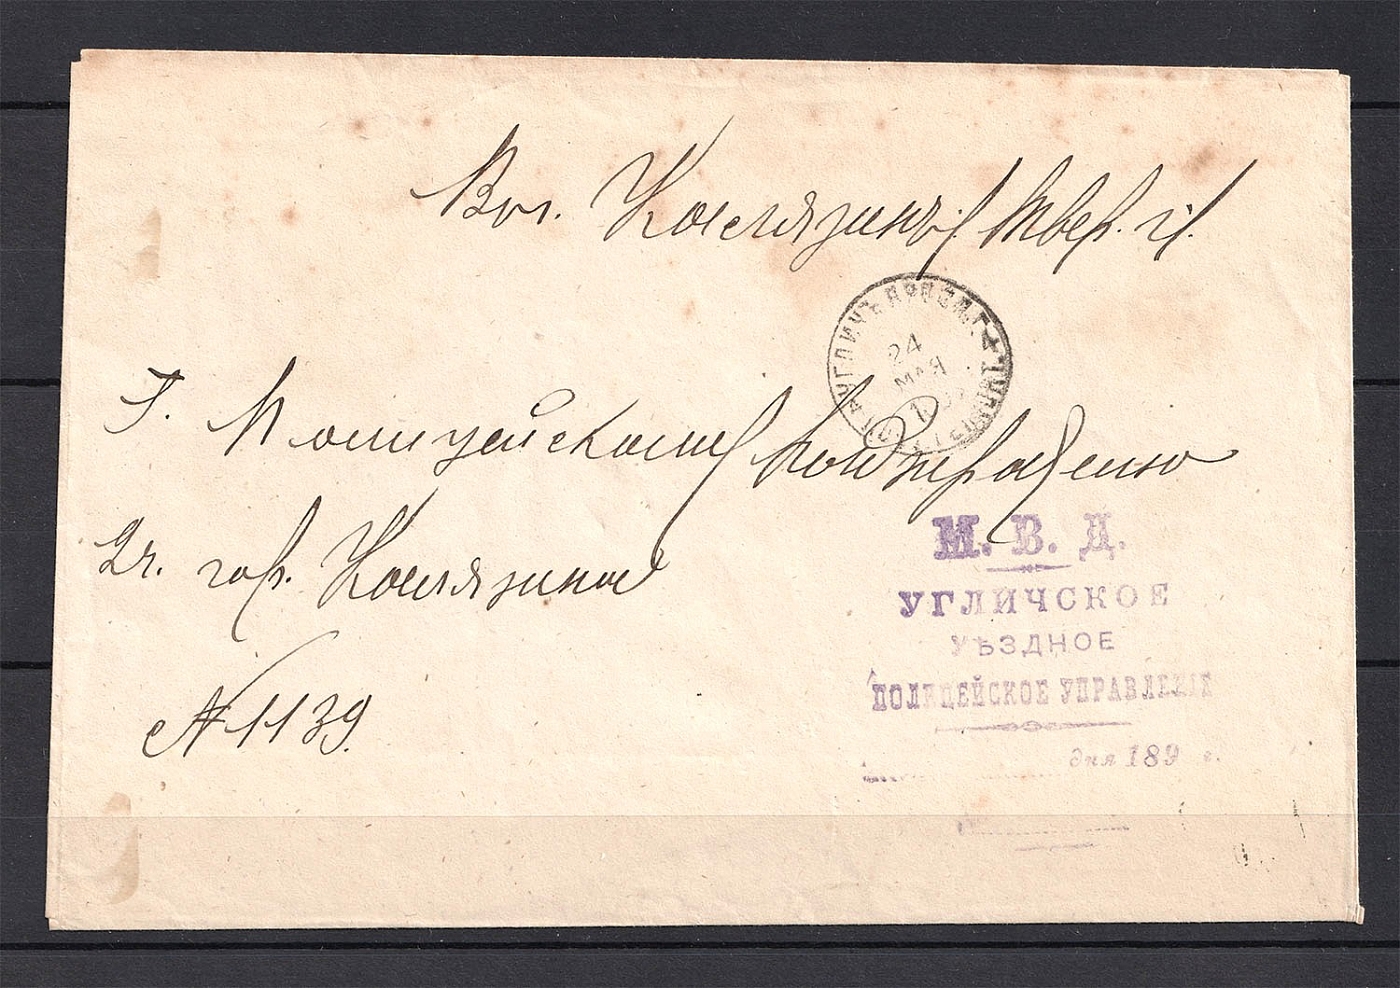 Въ г. Калязинъ, Твер. г.
УГЛИЧЪ ЯРОСЛ. Г.
24
МАЯ
1
Г. Полицейскому Надзирателю
2 ч. гор. Калязина
№ 1139.
М. В. Д.
УГЛИЧСКОЕ
УѢЗДНОЕ
ПОЛИЦЕЙСКОЕ УПРАВЛЕНІЕ
дня 189 г.